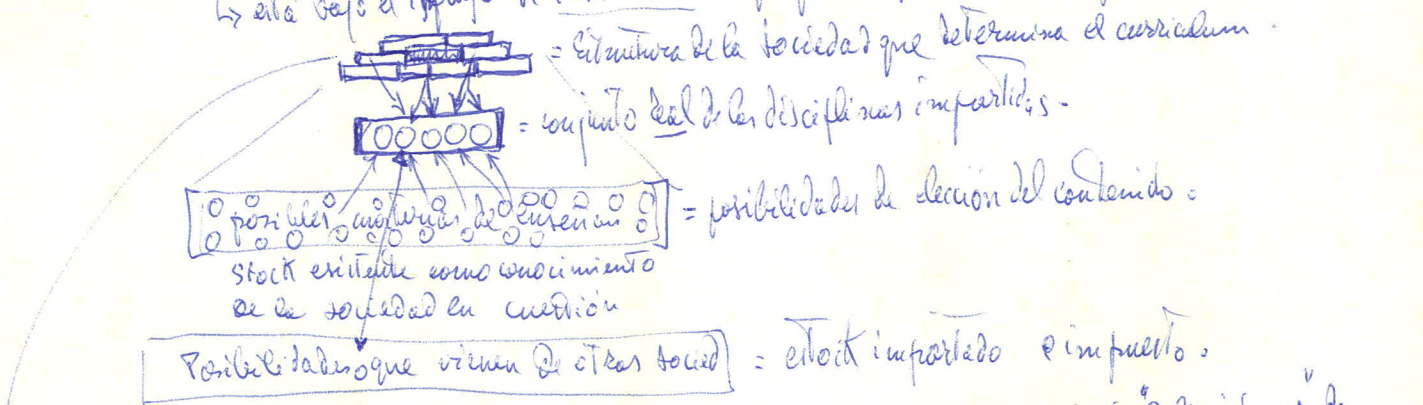 ↳ está bajo el
= Estructura de la sociedad que determina el curriculum.
= conjunto real de las disciplinas impartidas.
posibles materias de enseñan = posibilidades de elección del contenido.
Stock existente como conocimiento
de la sociedad en cuestión
Posibilidades que vienen de otras socied = estock importado e impuesto.